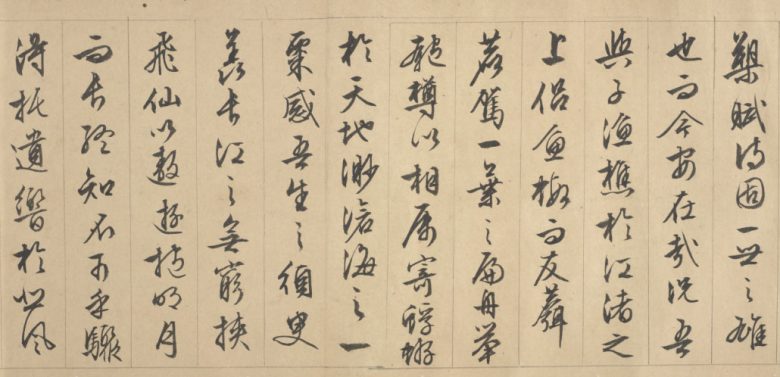 槊賦詩固一世之雄
也而今安在哉況吾
與子漁樵於江渚之
上侶魚蝦而友麋
鹿駕一葉之扁舟舉
匏樽以相屬寄蜉蝣
於天地渺滄海之一
粟感吾生之須臾
羨長江之無窮挾
飛仙以遨遊抱明月
而長終知不可乎驟
得托遺響於悲風